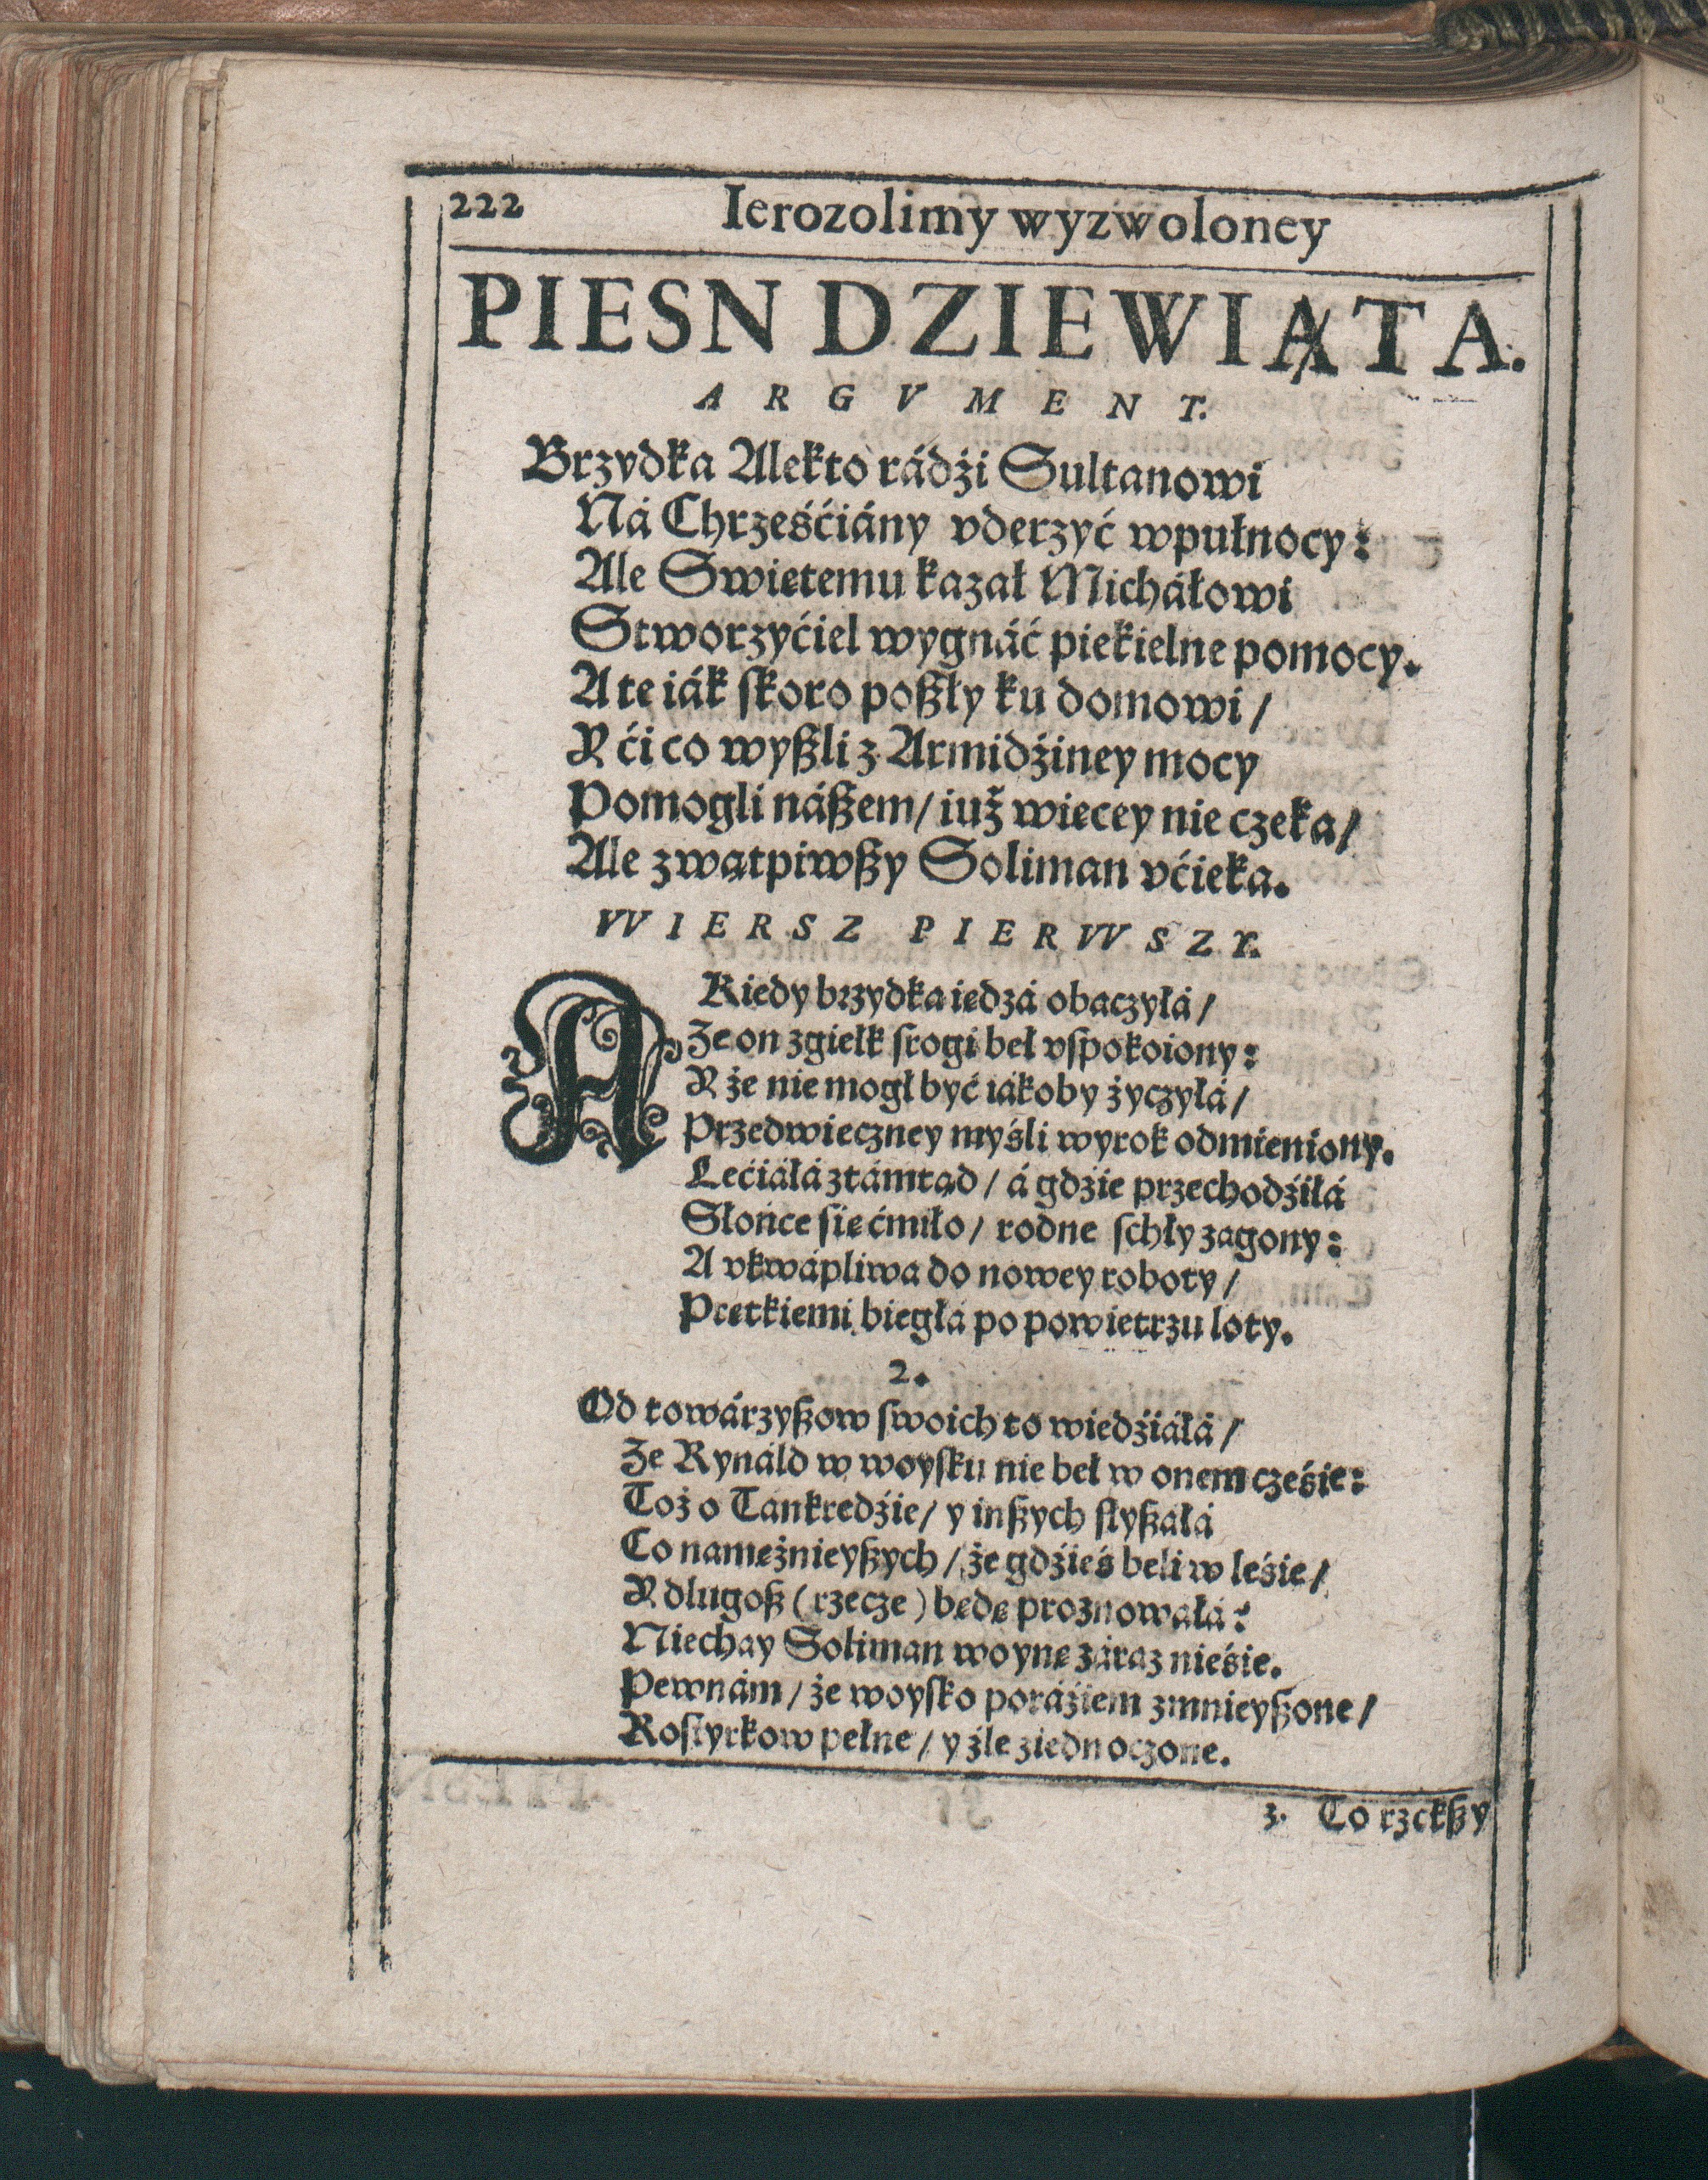 222 Ierozolimy wyzwoloney
PIESN DZIEWIĄTA.
ARGVMENT.
Brzydka Alekto rádźi Sultanowi
Ná Chrześćiány vderzyć wpułnocy:
Ale Swiętemu kazał Micháłowi
Stworzyćiel wygnáć piekielne pomocy.
A te iák skoro poszły ku domowi/
Y ći co wyszli z Armidźiney mocy
Pomogli nászem/ iuż więcey nie czeka/
Ale zwątpiwszy Soliman vćieka.
WIERSZ PIERWSZY.
A Kiedy brzydka iędzá obaczyłá/
Że on zgiełk srogi beł vspokoiony:
Y że nie mogł być iákoby życzyłá/
Przedwieczney myśli wyrok odmieniony.
Lećiáłá ztámtąd/ á gdźie przechodźiłá
Słońce się ćmiło/ rodne schły zagony:
A vkwápliwa do nowey roboty/
Prętkiemi biegłá po powietrzu loty.
2.
Od towárzyszow swoich to wiedźiáłá/
Że Rynáld w woysku nie beł w onem cześie:
Toż o Tánkredźie/ y inszych słyszáłá
Co namężnieyszych/ że gdźieś beli w leśie/
Y długosz (rzecze) będę proznowáłá:
Niechay Soliman woynę záraz nieśie.
Pewnám/ że woysko poráźiem zmnieyszone/
Rostyrkow pełne/ y źle ziednoczone.
3. To rzekszy